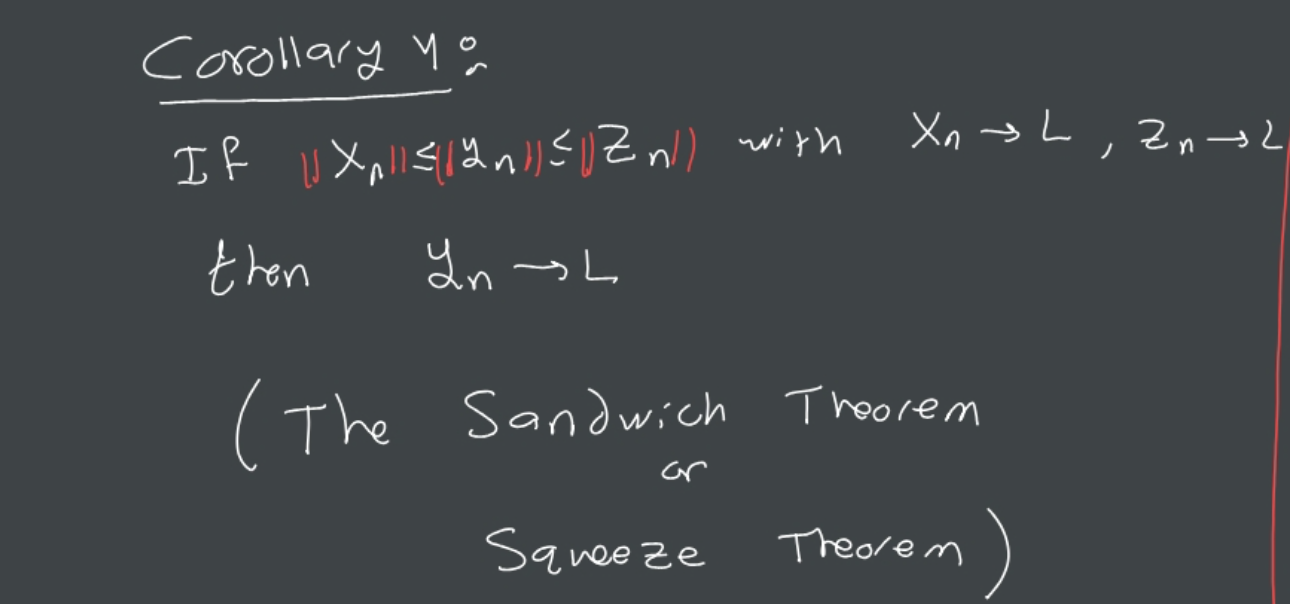 Corollary 4:
If ||Xₙ||≤||yₙ||≤||Zₙ|| with Xₙ → L, Zₙ → L
then yₙ → L
(The Sandwich Theorem
or
Squeeze Theorem)